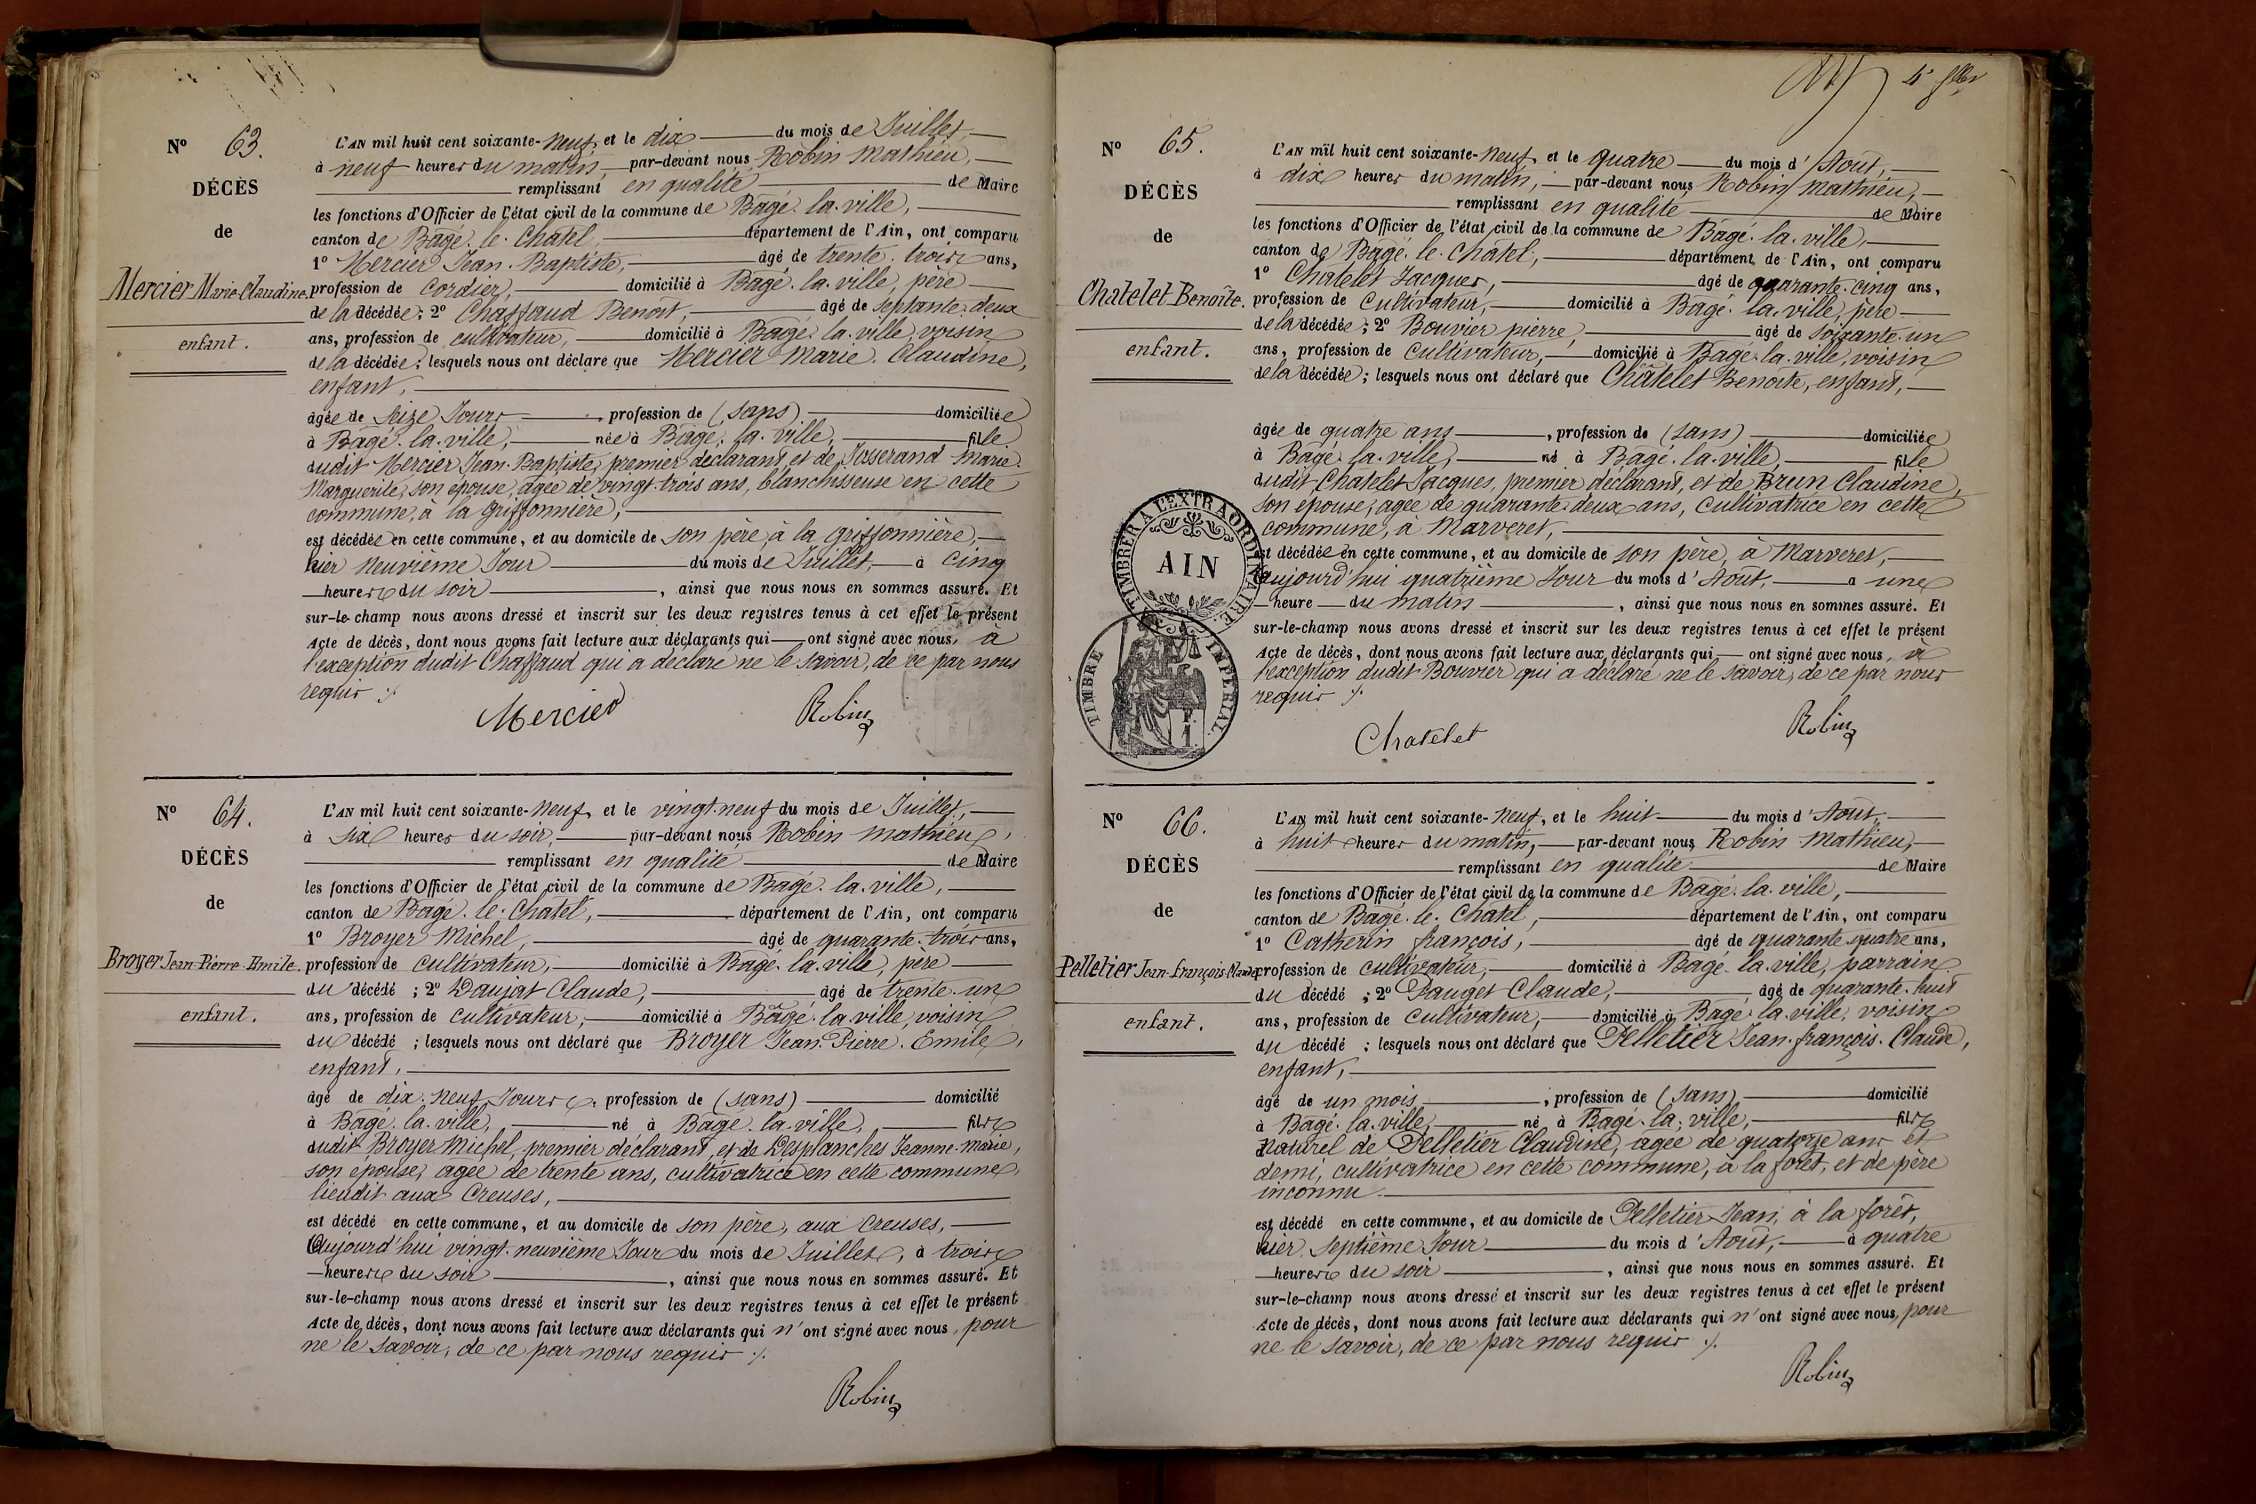 Nº 63.
DÉCÈS
de
Mercier Marie-Claudine.
enfant.
L'AN mil huit cent soixante-neuf, et le dix du mois de Juillet,
à neuf heures du matin, par-devant nous Robin Mathieu,
remplissant en qualité de Maire
les fonctions d'Officier de l'état civil de la commune de Bâgé-la-ville,
canton de Bâgé-le-Châtel, département de l'Ain, ont comparu
1º Mercier Jean-Baptiste, âgé de trente-trois ans,
profession de cordier, domicilié à Bâgé-la-ville, père
de la décédée; 2º Chaffaud Benoît, âgé de septante-deux
ans, profession de cultivateur, domicilié à Bâgé-la-ville, voisin
de la décédée; lesquels nous ont déclaré que Mercier Marie-Claudine,
enfant,
âgée de seize Jours, profession de (sans) domiciliée
à Bâgé-la-ville, née à Bâgé-la-ville, fille
dudit Mercier Jean-Baptiste, premier déclarant, et de Josserand Marie-
Marguerite, son épouse, âgée de vingt-trois ans, blanchisseuse en cette
commune, à la griffonnière,
est décédée en cette commune, et au domicile de son père, à la griffonnière,
hier neuvième Jour du mois de Juillet, à cinq
heures du soir, ainsi que nous nous en sommes assuré. Et
sur-le-champ nous avons dressé et inscrit sur les deux registres tenus à cet effet le présent
Acte de décès, dont nous avons fait lecture aux déclarants qui ont signé avec nous, à
l'exception dudit Chaffaud qui a déclaré ne le savoir, de ce par nous
requis ./.
Mercier Robin
Nº 64.
DÉCÈS
de
Broyer Jean-Pierre-Emile.
enfant.
L'AN mil huit cent soixante-neuf, et le vingt-neuf du mois de Juillet,
à six heures du soir, par-devant nous Robin Mathieu,
remplissant en qualité de Maire
les fonctions d'Officier de l'état civil de la commune de Bâgé-la-ville,
canton de Bâgé-le-Châtel, département de l'Ain, ont comparu
1º Broyer Michel, âgé de quarante-trois ans,
profession de cultivateur, domicilié à Bâgé-la-ville, père
du décédé; 2º Daujat Claude, âgé de trente-un
ans, profession de cultivateur, domicilié à Bâgé-la-ville, voisin
du décédé; lesquels nous ont déclaré que Broyer Jean-Pierre-Emile,
enfant,
âgé de dix-neuf Jours, profession de (sans) domicilié
à Bâgé-la-ville, né à Bâgé-la-ville, fils
dudit Broyer Michel, premier déclarant, et de Desplanches Jeanne-Marie,
son épouse, âgée de trente ans, cultivatrice en cette commune,
lieudit aux Creuses,
est décédé en cette commune, et au domicile de son père, aux Creuses,
aujourd'hui vingt-neuvième Jour du mois de Juillet, à trois
heures du soir, ainsi que nous nous en sommes assuré. Et
sur-le-champ nous avons dressé et inscrit sur les deux registres tenus à cet effet le présent
Acte de décès, dont nous avons fait lecture aux déclarants qui n'ont signé avec nous, pour
ne le savoir, de ce par nous requis ./.
Robin
Nº 65.
DÉCÈS
de
Chatelet Benoîte.
enfant.
L'AN mil huit cent soixante-neuf, et le quatre du mois d'Août,
à dix heures du matin, par-devant nous Robin Mathieu,
remplissant en qualité de Maire
les fonctions d'Officier de l'état civil de la commune de Bâgé-la-ville,
canton de Bâgé-le-Châtel, département de l'Ain, ont comparu
1º Chatelet Jacques, âgé de quarante-cinq ans,
profession de cultivateur, domicilié à Bâgé-la-ville, père
de la décédée; 2º Bouvier pierre, âgé de soixante-un
ans, profession de cultivateur, domicilié à Bâgé-la-ville, voisin
de la décédée; lesquels nous ont déclaré que Châtelet Benoîte, enfant,
âgée de quatre ans, profession de (sans) domiciliée
à Bâgé-la-ville, né à Bâgé-la-ville, fille
dudit Chatelet Jacques, premier déclarant, et de Brun Claudine,
son épouse, âgée de quarante-deux ans, cultivatrice en cette
commune, à Marveret,
est décédée en cette commune, et au domicile de son père, à Marveret,
aujourd'hui quatrième Jour du mois d'Août, à une
heure du matin, ainsi que nous nous en sommes assuré. Et
sur-le-champ nous avons dressé et inscrit sur les deux registres tenus à cet effet le présent
Acte de décès, dont nous avons fait lecture aux déclarants qui ont signé avec nous, à
l'exception dudit Bouvier qui a déclaré ne le savoir, de ce par nous
requis ./.
Chatelet Robin
TIMBRER A L'EXTRAORDINAIRE.
AIN
TIMBRE IMPÉRIAL.
Nº 66.
DÉCÈS
de
Pelletier Jean-françois-Claude
enfant.
L'AN mil huit cent soixante-neuf, et le huit du mois d'Août,
à huit heures du matin, par-devant nous Robin Mathieu,
remplissant en qualité de Maire
les fonctions d'Officier de l'état civil de la commune de Bâgé-la-ville,
canton de Bâgé-le-Châtel, département de l'Ain, ont comparu
1º Catherin françois, âgé de quarante-quatre ans,
profession de cultivateur, domicilié à Bâgé-la-ville, parrain
du décédé; 2º Pauget Claude, âgé de quarante-huit
ans, profession de cultivateur, domicilié à Bâgé-la-ville, voisin
du décédé; lesquels nous ont déclaré que Pelletier Jean-françois-Claude,
enfant,
âgé de un mois, profession de (sans) domicilié
à Bâgé-la-ville, né à Bâgé-la-ville, fils
naturel de Pelletier Claudine, âgée de quatorze ans et
demi, cultivatrice en cette commune, à la forêt, et de père
inconnu.
est décédé en cette commune, et au domicile de Pelletier Jean, à la forêt,
hier septième Jour du mois d'Août, à quatre
heures du soir, ainsi que nous nous en sommes assuré. Et
sur-le-champ nous avons dressé et inscrit sur les deux registres tenus à cet effet le présent
Acte de décès, dont nous avons fait lecture aux déclarants qui n'ont signé avec nous, pour
ne le savoir, de ce par nous requis ./.
Robin